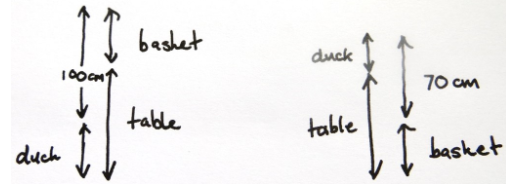 basket
100cm
table
duck
duck
70 cm
table
basket